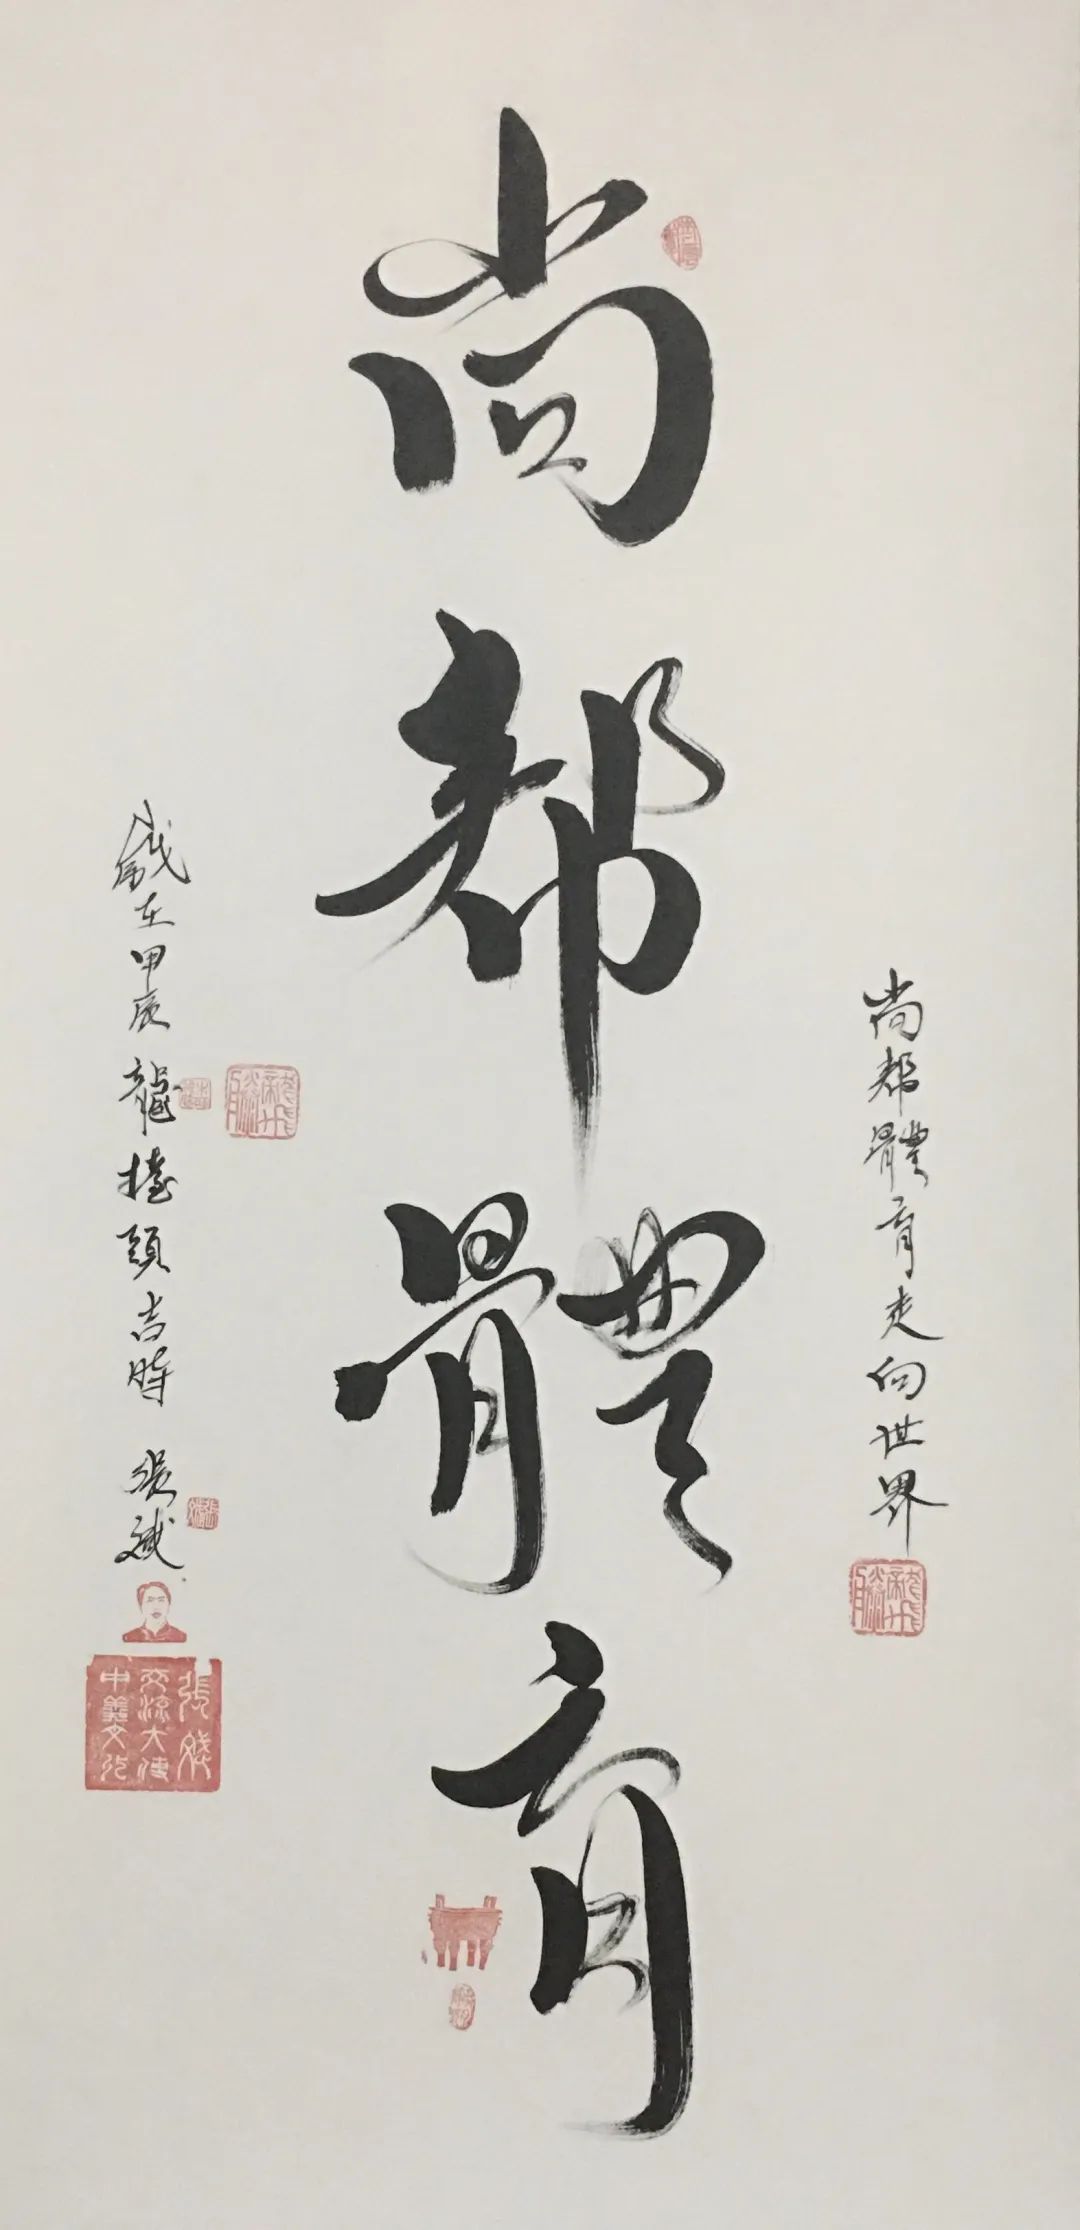 尚帮體育走向世界
尚帮體育
歲在甲辰龍擡頭吉時 張斌
張斌
交流大使
文化